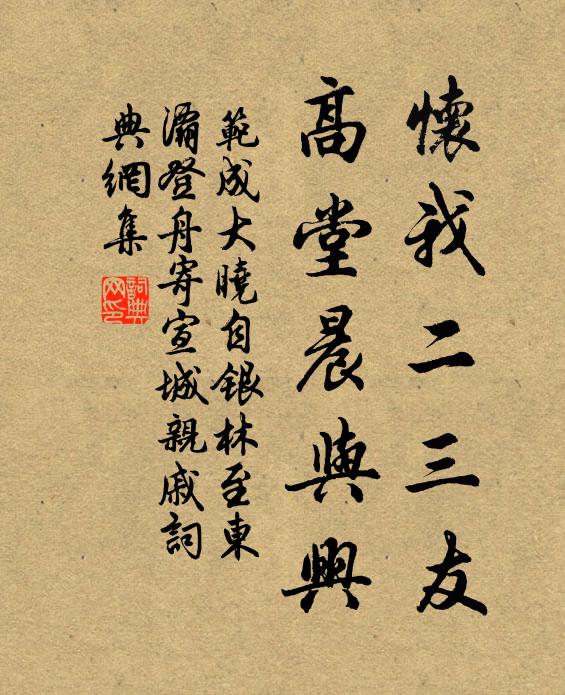 懷我二三友
高堂晨與興
範成大曉自銀林至東
灞登舟寄宣城親戚詞
典網集
詞典
网印